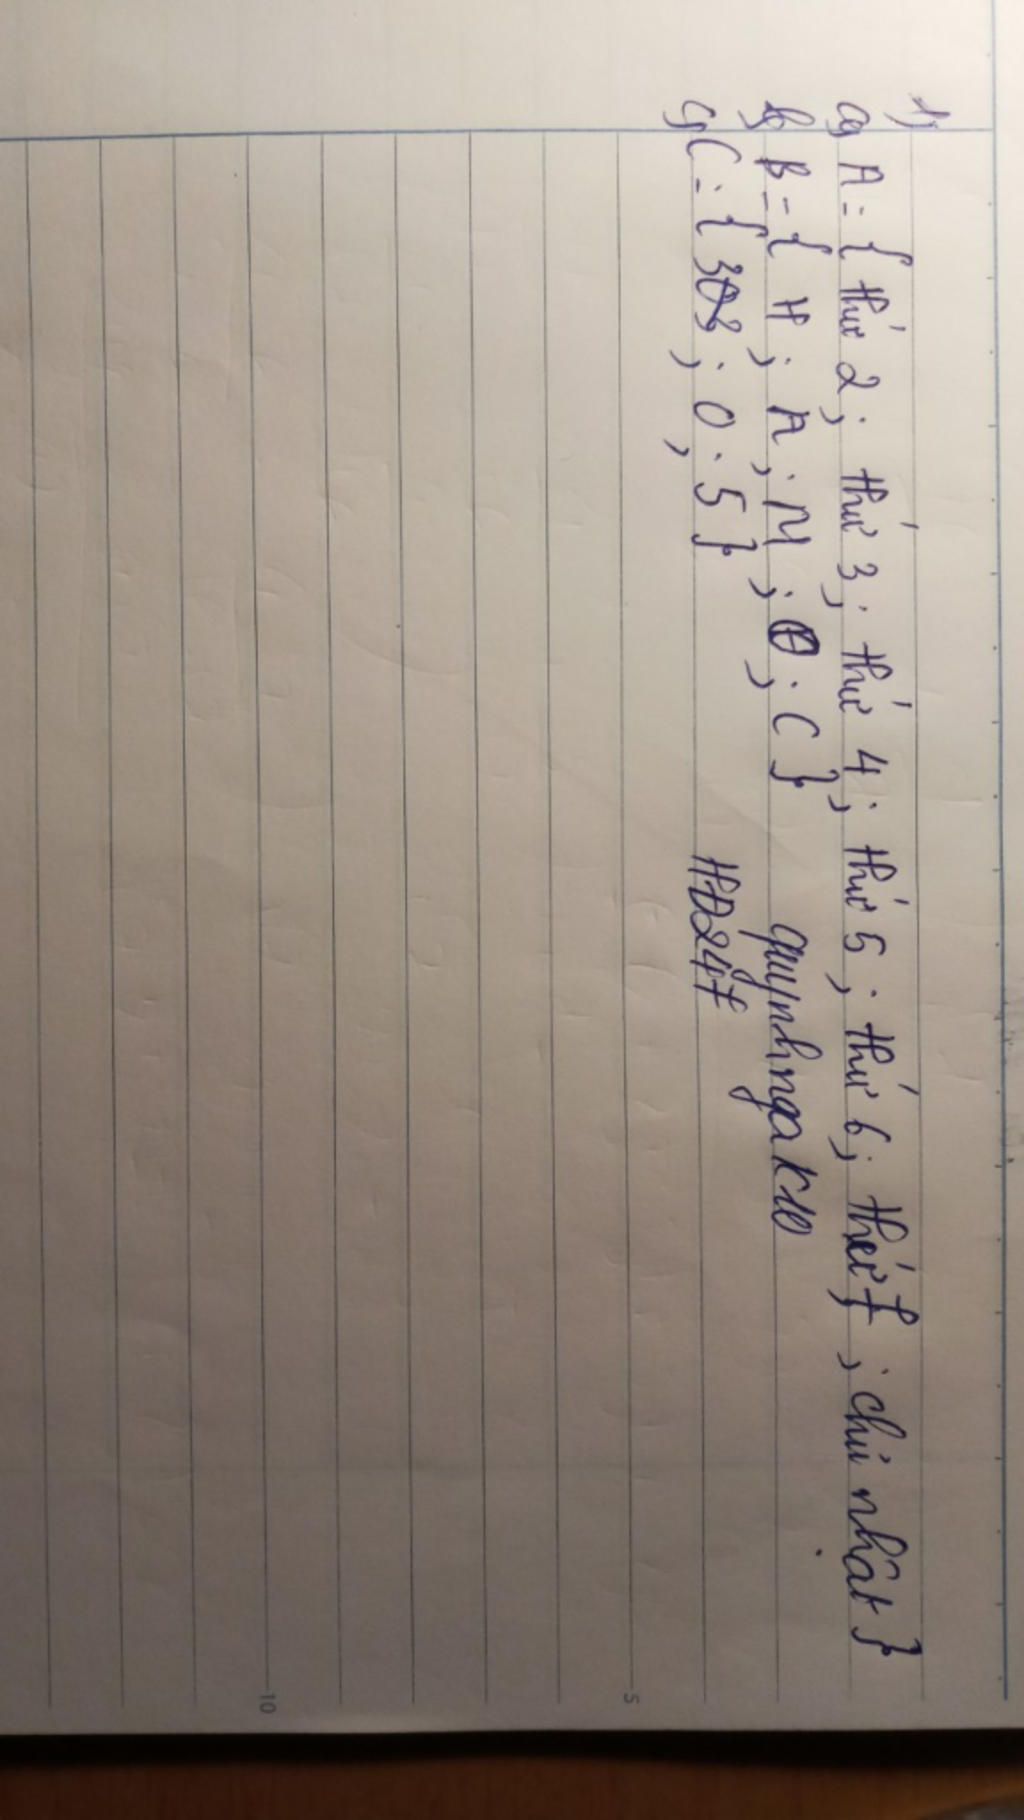 1)
a) A = { thứ 2 ; thứ 3 ; thứ 4 ; thứ 5 ; thứ 6 ; thứ 7 ; chủ nhật }
b) B = { H ; A ; M ; O ; C } quynhngak10
c) C = { 3 ; 0 ; 5 } HĐ247
5
10